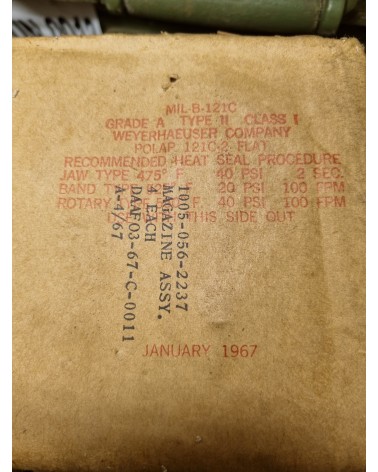 MIL-B-121C
GRADE A TYPE II CLASS I
WEYERHAEUSER COMPANY
POLAP 121C-2 FLAT
RECOMMENDED HEAT SEAL PROCEDURE
JAW TYPE 475° F. 40 PSI 2 SEC.
BAND TYPE F. 20 PSI 100 FPM
ROTARY TYPE F. 40 PSI 100 FPM
THIS SIDE OUT
1005-056-2237
MAGAZINE ASSY.
EACH
DAAF03-67-C-0011
A-4/67
JANUARY 1967